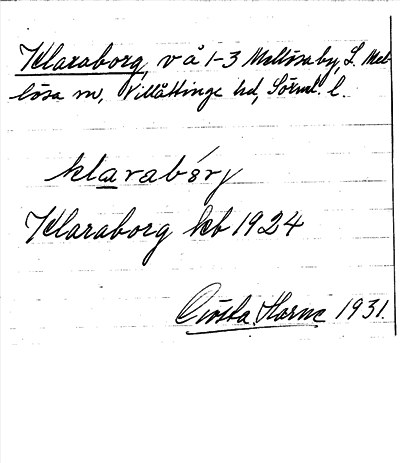 Klaraborg, v å 1-3 Mellösa by, L. Mel-
lösa sn, Villåttinge hd, Sörml. l.
klarabórj
Klaraborg kb 1924
Gösta Horne 1931.